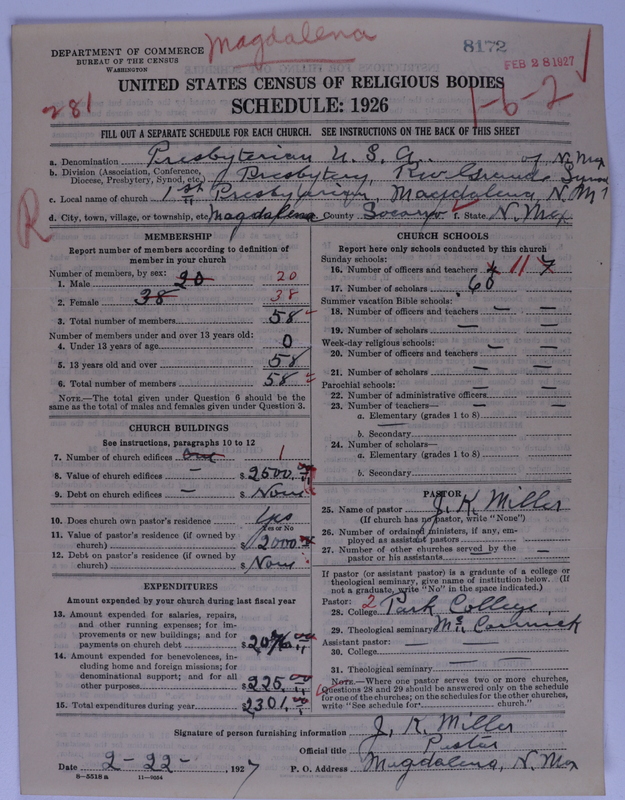 Magdalena
8172
FEB 28 1927
DEPARTMENT OF COMMERCE
BUREAU OF THE CENSUS
WASHINGTON
1-6-2
UNITED STATES CENSUS OF RELIGIOUS BODIES
281
SCHEDULE: 1926
FILL OUT A SEPARATE SCHEDULE FOR EACH CHURCH. SEE INSTRUCTIONS ON THE BACK OF THIS SHEET
a. Denomination Presbyterian U. S. A. of N. Mex
b. Division (Association, Conference, Diocese, Presbytery, Synod, etc.) Presbytery, Rio Grande
c. Local name of church 1st Presbyterian, Magdalena, N. M
d. City, town, village, or township, etc. Magdalena County Socorro f. State N. Mex
R
MEMBERSHIP
Report number of members according to definition of member in your church
Number of members, by sex:
1. Male 20 20
2. Female 38 38
3. Total number of members 58
Number of members under and over 13 years old:
4. Under 13 years of age 0
5. 13 years old and over 58
6. Total number of members 58
NOTE.—The total given under Question 6 should be the
same as the total of males and females given under Question 3.
CHURCH BUILDINGS
See instructions, paragraphs 10 to 12
7. Number of church edifices one 1
8. Value of church edifices — $ 2500.
9. Debt on church edifices — $ None
10. Does church own pastor's residence Yes
Yes or No
11. Value of pastor's residence (if owned by
church) $ 2000.
12. Debt on pastor's residence (if owned by
church) $ None
EXPENDITURES
Amount expended by your church during last fiscal year
13. Amount expended for salaries, repairs,
and other running expenses; for im-
provements or new buildings; and for
payments on church debt $ 2076
14. Amount expended for benevolences, in-
cluding home and foreign missions; for
denominational support; and for all
other purposes $ 225.
15. Total expenditures during year $ 2301.
CHURCH SCHOOLS
Report here only schools conducted by this church
Sunday schools:
16. Number of officers and teachers 11 7
17. Number of scholars 60
Summer vacation Bible schools:
18. Number of officers and teachers — —
19. Number of scholars — —
Week-day religious schools:
20. Number of officers and teachers — —
21. Number of scholars — —
Parochial schools:
22. Number of administrative officers — —
23. Number of teachers—
a. Elementary (grades 1 to 8)
b. Secondary
24. Number of scholars—
a. Elementary (grades 1 to 8)
b. Secondary
PASTOR
25. Name of pastor J. K. Miller
(If church has no pastor, write "None")
26. Number of ordained ministers, if any, em-
ployed as assistant pastors
27. Number of other churches served by the
pastor or his assistants —
If pastor (or assistant pastor) is a graduate of a college or
theological seminary, give name of institution below. (If
not a graduate, write "No" in the space indicated.)
Pastor:
28. College 2 Park College
29. Theological seminary McCormick
Assistant pastor:
30. College — —
31. Theological seminary — —
NOTE.—Where one pastor serves two or more churches,
Questions 28 and 29 should be answered only on the schedule
for one of the churches; on the schedules for the other churches,
write "See schedule for church."
Signature of person furnishing information J. K. Miller
Official title Pastor
Date 2-22- 1927
P. O. Address Magdalena, N. Mex
8—5518 a 11—9664